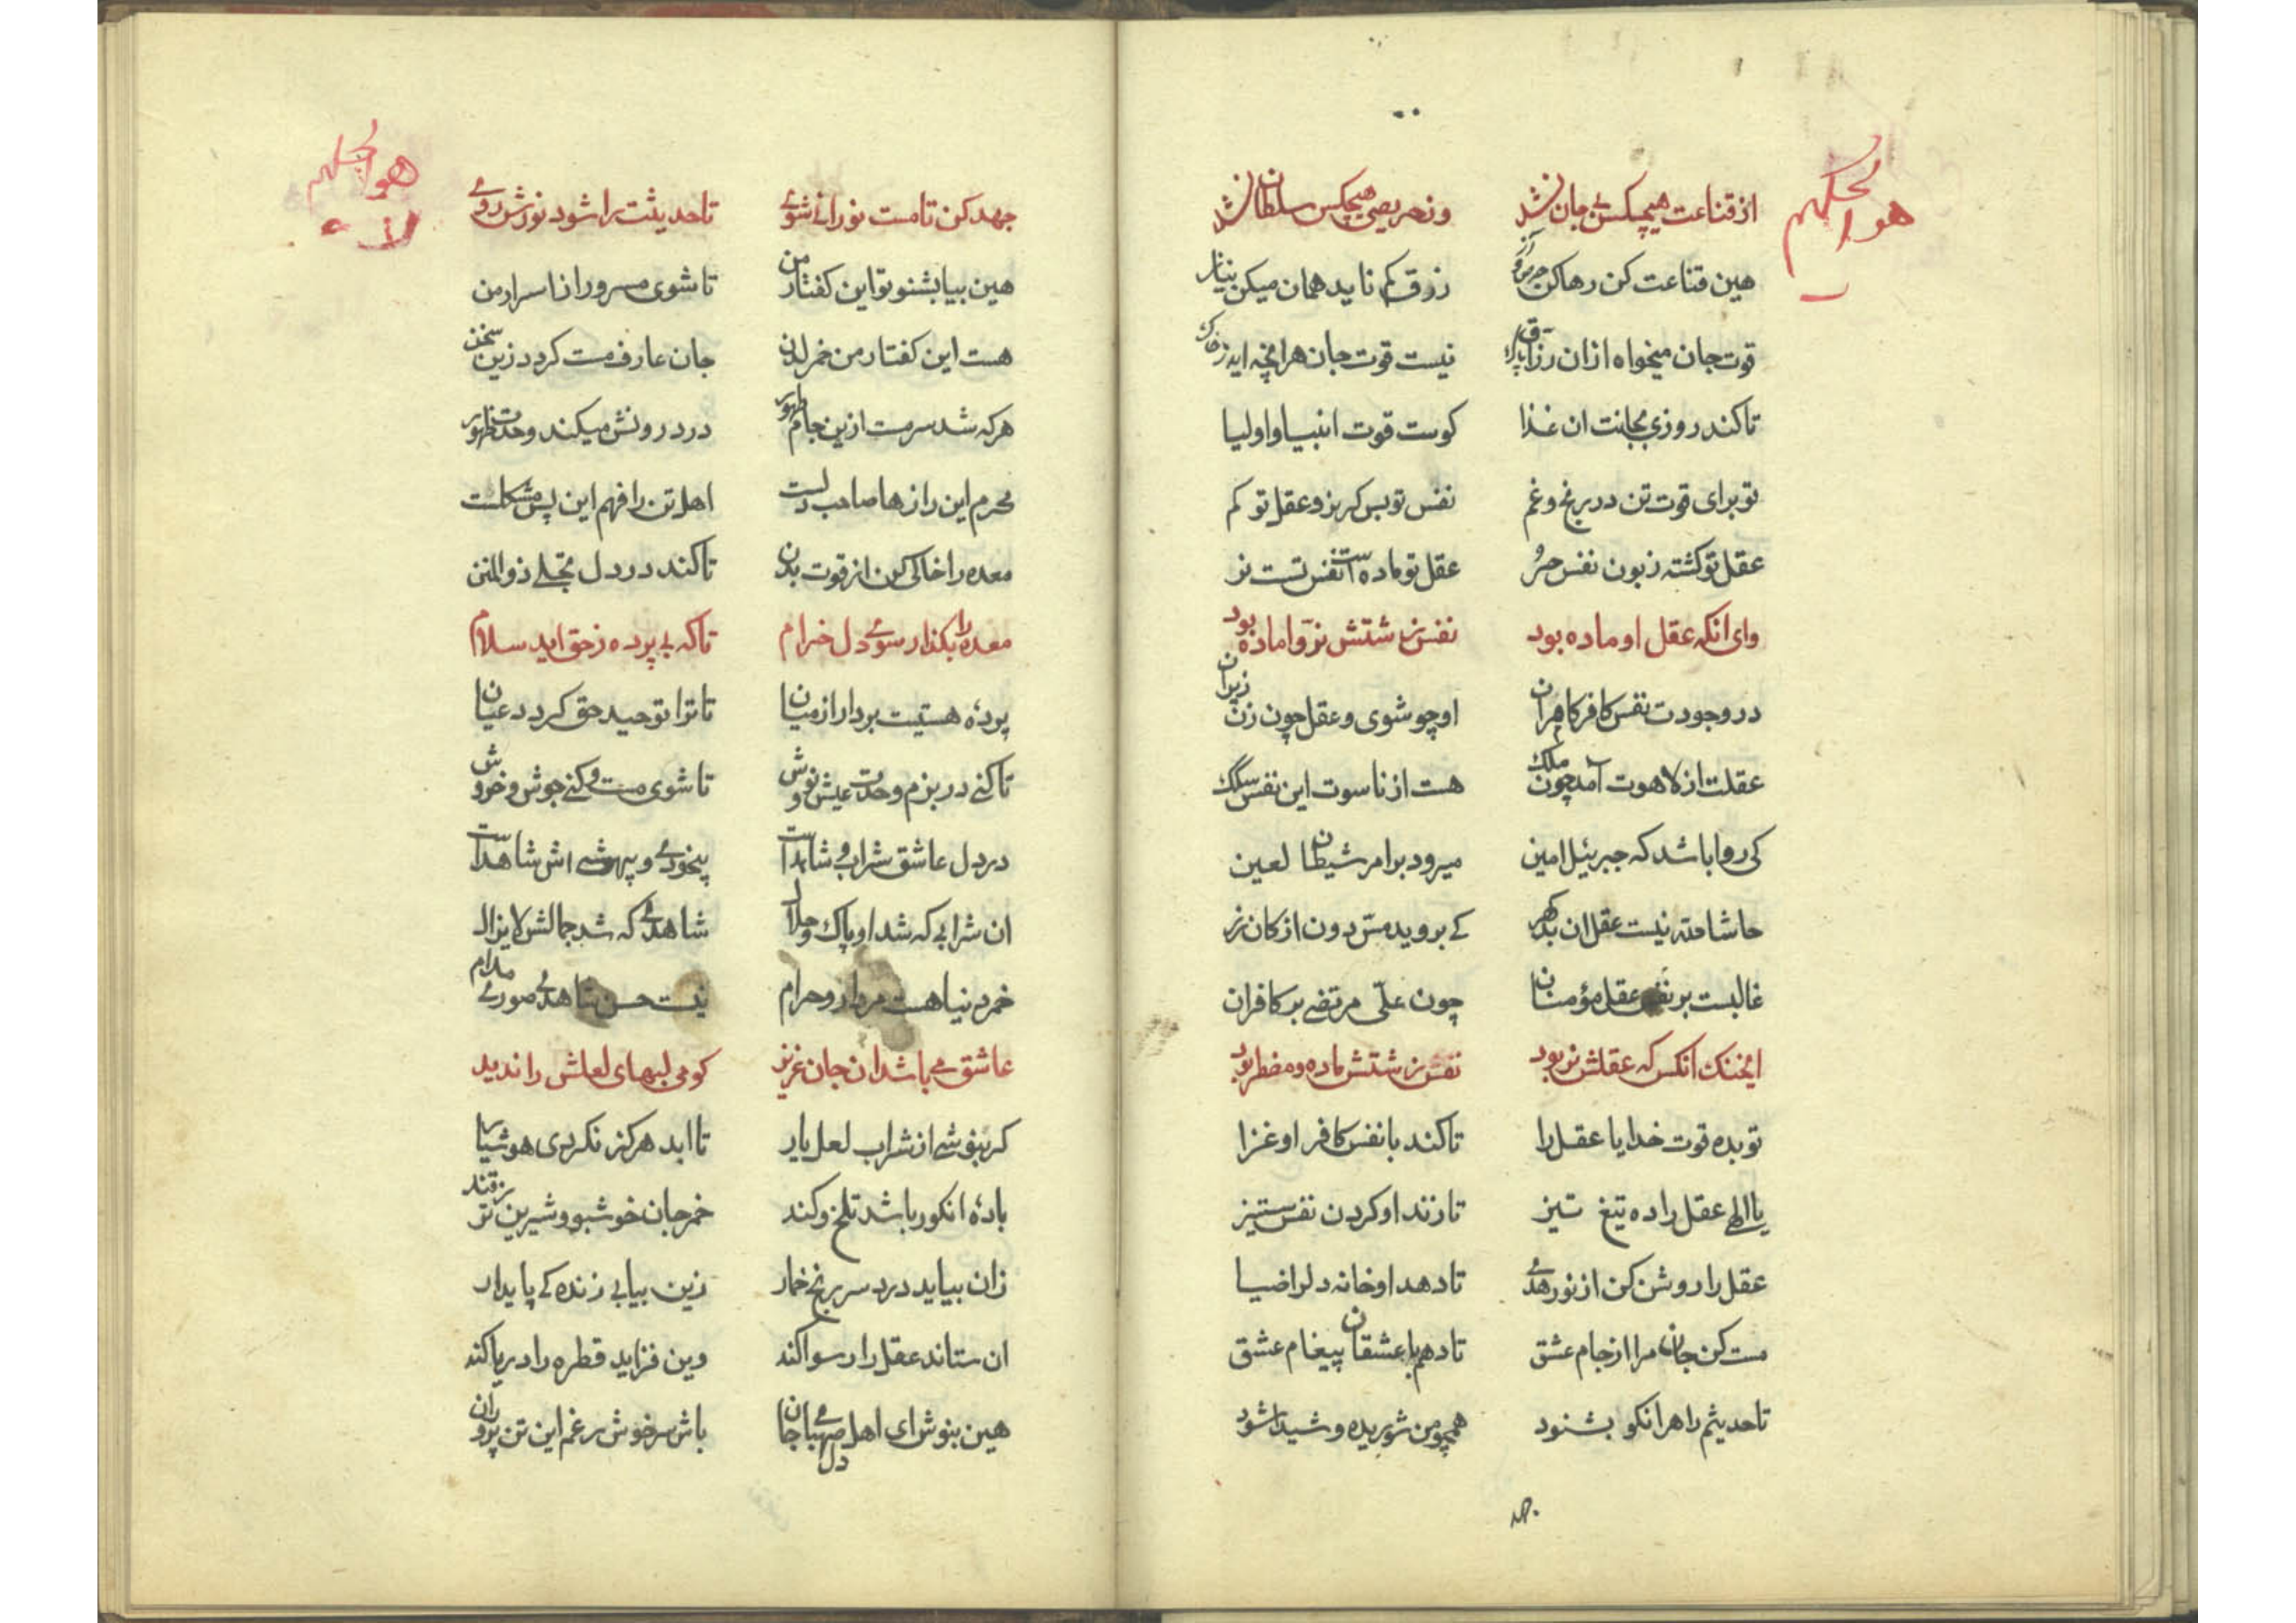 هو الحکیم
از قناعت هیچکس بی جان نشد وز حریصی هیچکس سلطان نشد
هین قناعت کن رها کن حرص و آز رزق کم ناید همان میکن نیاز
قوت جان میخواه ازان رزاق پاک نیست قوت جان هرانچه اید ز خاک
تا کند روزی بجانت ان غذا کوست قوت انبیا و اولیا
تو برای قوت تن در رنج و غم نفس تو بس کربز و عقل تو کم
عقل تو کشته زبون نفس خر عقل تو ماده است نفس تست نر
وای انکه عقل او ماده بود نفس زشتش نر و اماده بود
در وجودت نفس کافر کامران او چو شوی و عقل چون زن زیر ان
عقلت از لاهوت آمد چون ملک هست از ناسوت این نفس سگک
کی روا باشد که جبرئیل امین میرود بر امر شیطان لعین
حاشا حته نیست عقل ان بد کهر کے بروید مس دون از کان زر
غالبست بر نفس عقل مؤمنان چون علی مرتضے بر کافران
ایخنک انکس که عقلش نر بود نفس زشتش ماده و مضطر بود
تو بده قوت خدایا عقل را تا کند با نفس کافر او غزا
یا الهی عقل را ده تیغ تیز تا زند او کردن نفس ستیز
عقل را روشن کن از نور هدی تا دهد او خانه دلرا ضیا
مست کن جان مرا از جام عشق تا دهم با عشقان پیغام عشق
تا حدیثم را هر انکو بشنود همچو من شوریده و شیدا شود
هو الحکیم
جهد کن تا مست نورانی شوی تا حدیثت را شود نورش روی
هین بیا بشنو تو این کفتار من تا شوی مسرور از اسرار من
هست این کفتار من خمر لدن جان عارف مست کردد زین سخن
هر که شد سرمست ازین جام طهور در درونش میکند وحدت ظهور
محرم این رازها صاحب دلست اهل تن را فهم این پس مشکلست
معده را خالی کن از قوت بدن تا کند در دل تجلے ذوالمنن
معده را بکذار سوی دل خرام تا که بی پرده ز حق اید سلام
پردۀ هستیت بردار از میان تا ترا توحید حق کردد عیان
تا کنی در بزم وحدت عیش و نوش تا شوی مست و کنی جوش و خروش
در دل عاشق شراب و شاهد است بیخودی و بیهوشے اش شاهد است
ان شرابی که شد او پاک و حلال شاهدی که شد جمالش لایزال
خمر دنیا هست مردار و حرام نیست حسن شاهد صوری مدام
عاشق می باشد ان جان عزیز کو می لبهای لعلش را ندید
کر بنوشے از شراب لعل یار تا ابد هرکز نکردی هوشیار
بادۀ انکور باشد تلخ و کند خمر جان خوشبو و شیرین تر ز قند
زان بیاید درد سر رنج خمار زین بیابی زنده کے پایدار
ان ستاند عقل را رسوا کند وین فزاید قطره را دریا کند
هین بنوش ای اهل دل صهبای جان باش سرخوش رغم این تن پروران